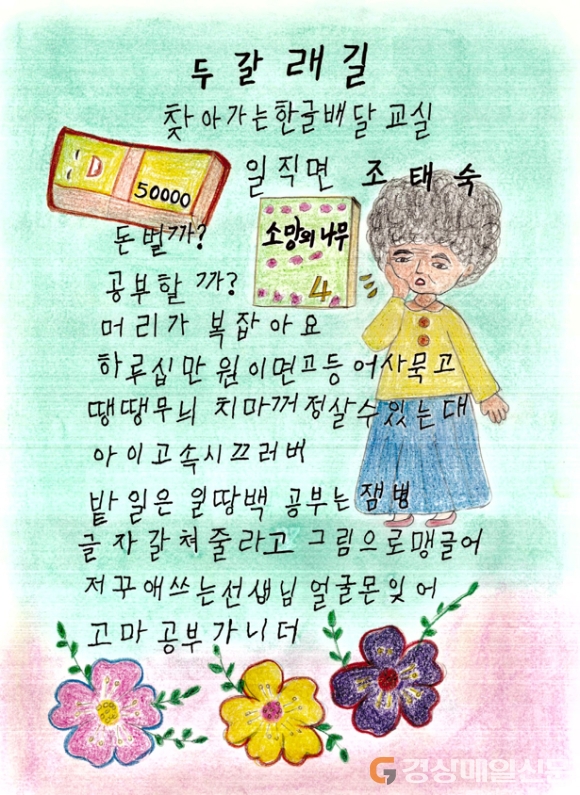 두 갈 래 길
찾아가는 한글배달교실
일직면 조태숙
50000
돈벌까?
소망의 나무
4
공부할까?
머리가 복잡아요
하루십만 원이면고등어사묵고
땡땡무늬 치마꺼정살수있는대
아이고속시끄러버
밭일은 일땅백 공부는잼병
글자갈쳐줄라고 그림으로맹글어
저꾸애쓰는선생님얼굴몬잊어
고마공부가니더
경상매일신문